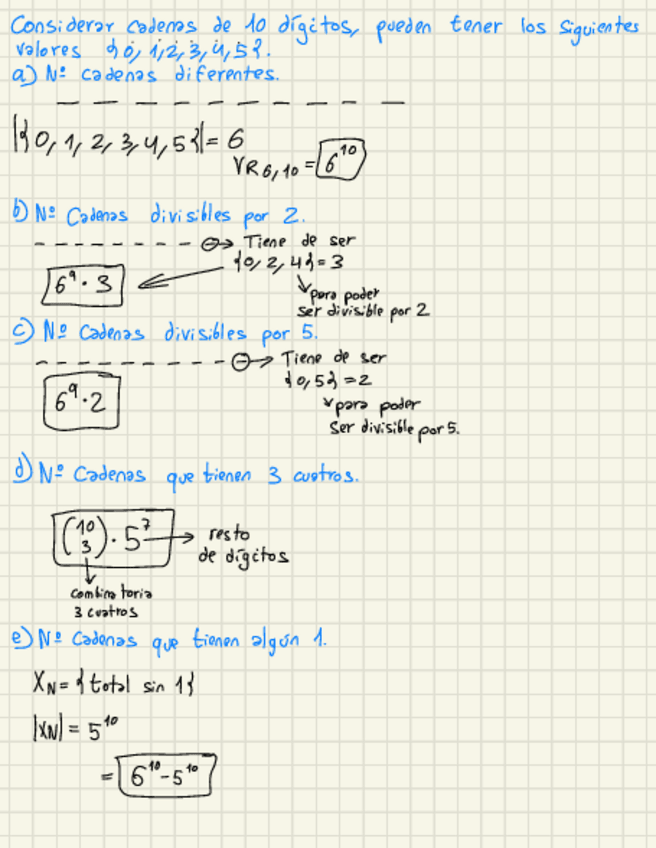 Considerar cadenas de 10 dígitos, pueden tener los siguientes
valores {0, 1, 2, 3, 4, 5}.
a) Nº cadenas diferentes.
_ _ _ _ _ _ _ _ _ _
|{0, 1, 2, 3, 4, 5}| = 6
VR6,10 = 6^10
b) Nº Cadenas divisibles por 2.
Tiene de ser
{0, 2, 4} = 3
6^9 · 3
para poder
ser divisible por 2
c) Nº Cadenas divisibles por 5.
Tiene de ser
{0, 5} = 2
6^9 · 2
para poder
Ser divisible por 5.
d) Nº Cadenas que tienen 3 cuatros.
(10 3) · 5^7 → resto
de dígitos
combinatoria
3 cuatros
e) Nº Cadenas que tienen algún 1.
XN = {total sin 1}
|XN| = 5^10
= 6^10 - 5^10